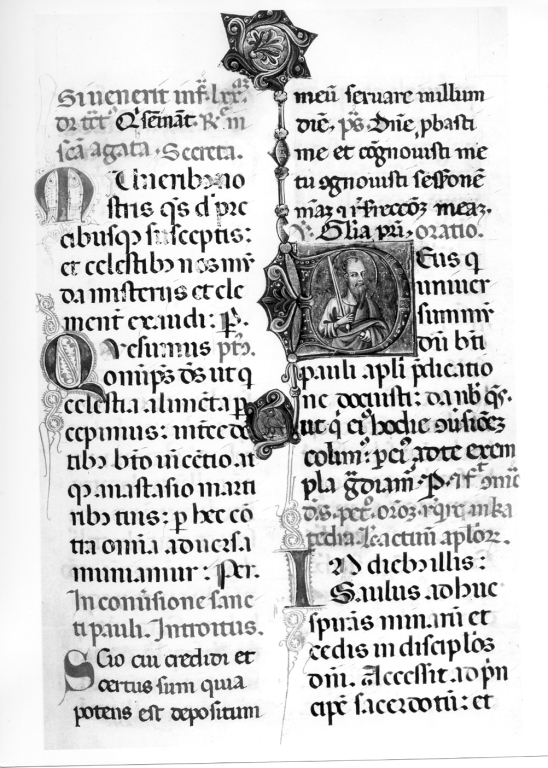 Si uenerit inf. lxx.
sca agata. Secreta.
Muneribz no
stris qs dne pre
cibusq susceptis:
et celestibz nos mr
da misteriis et cle
menter exaudi: p.
Quesumus
omips ds ut q
celestia alimeta p
cepimus: intecede
tibz bto uicetio at
q anastasio marti
ribz tuis: p hec co
tra omnia aduersa
muniamur: Per.
In conuersione sanc
ti pauli. Introitus.
Scio cui credidi et
certus sum quia
potens est depositum
meu seruare in illum
die, ps. Dne, pbasti
me et cognouisti me
tu cognouisti sessione
mea et resurrectoez mea.
V. Glia pri, oratio.
Deus q
uniuer
sum mu
du bti
pauli apli pdicatio
ne docuisti: da nob qs.
ut q ei hodie
colim: p ei ad te exem
pla gdiam. P.
Lectio actuu aplor.
In diebz illis:
Saulus adhuc
spirans minaru et
cedis in disciplos
dni. Accessit ad prin
cipe sacerdotu: et